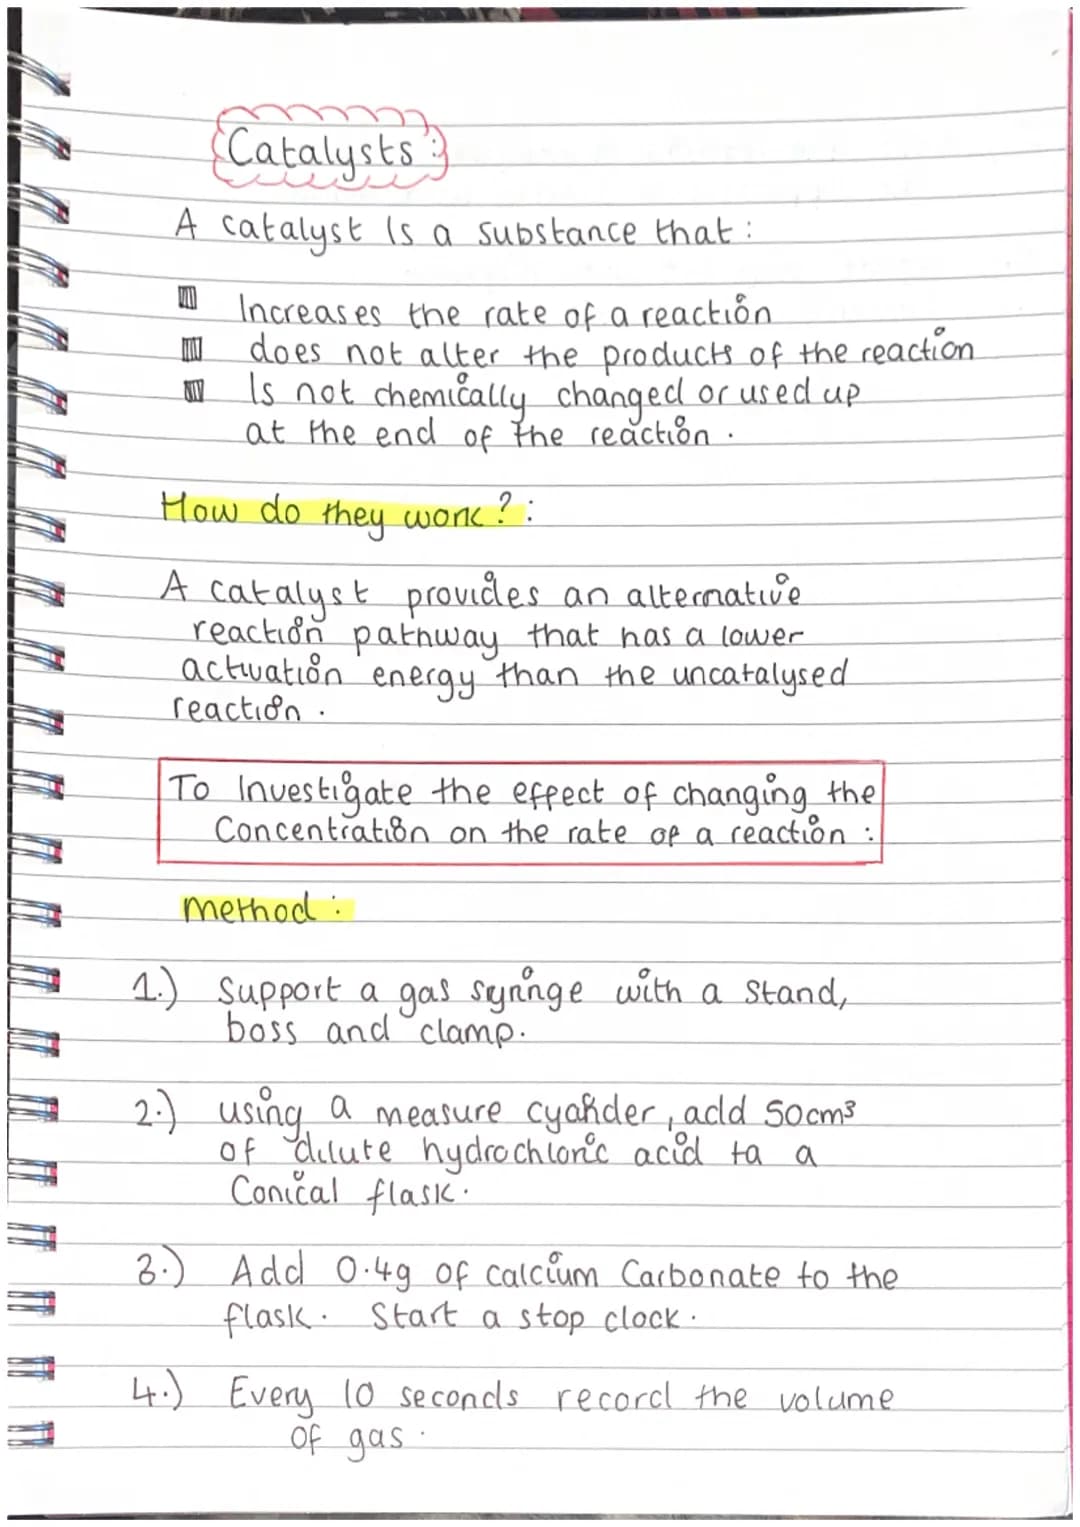 Catalysts :
A catalyst is a substance that :
Increases the rate of a reaction
does not alter the products of the reaction
Is not chemically changed or used up
at the end of the reaction .
How do they work ? :
A catalyst provides an alternative
reaction pathway that has a lower
activation energy than the uncatalysed
reaction .
To Investigate the effect of changing the
Concentration on the rate of a reaction :
method :
1.) Support a gas syringe with a stand,
boss and clamp.
2.) using a measure cylinder, add 50cm³
of dilute hydrochloric acid to a
Conical flask.
3.) Add 0.4g of calcium Carbonate to the
flask. Start a stop clock.
4.) Every 10 seconds record the volume
of gas.